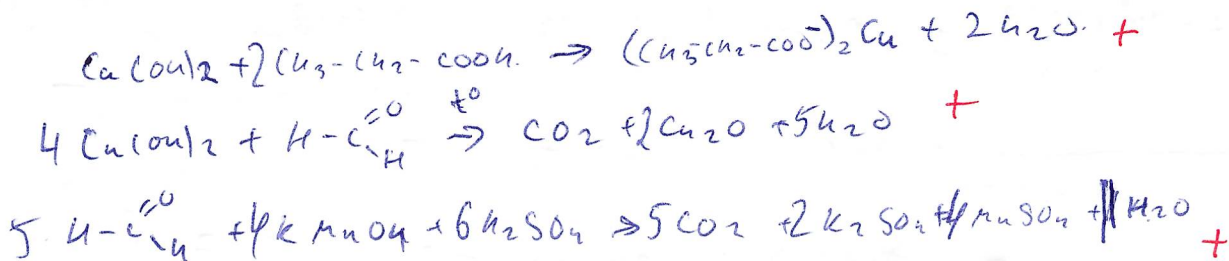 Cu(OH)2 + 2CH3-CH2-COOH. → (CH3CH2-COO⁻)2Cu + 2H2O. +
4 Cu(OH)2 + H-C=O-H t° → CO2 + 2Cu2O + 5H2O +
5 H-C=O-H + 4KMnO4 + 6H2SO4 → 5CO2 + 2K2SO4 + 4MnSO4 + 11H2O +